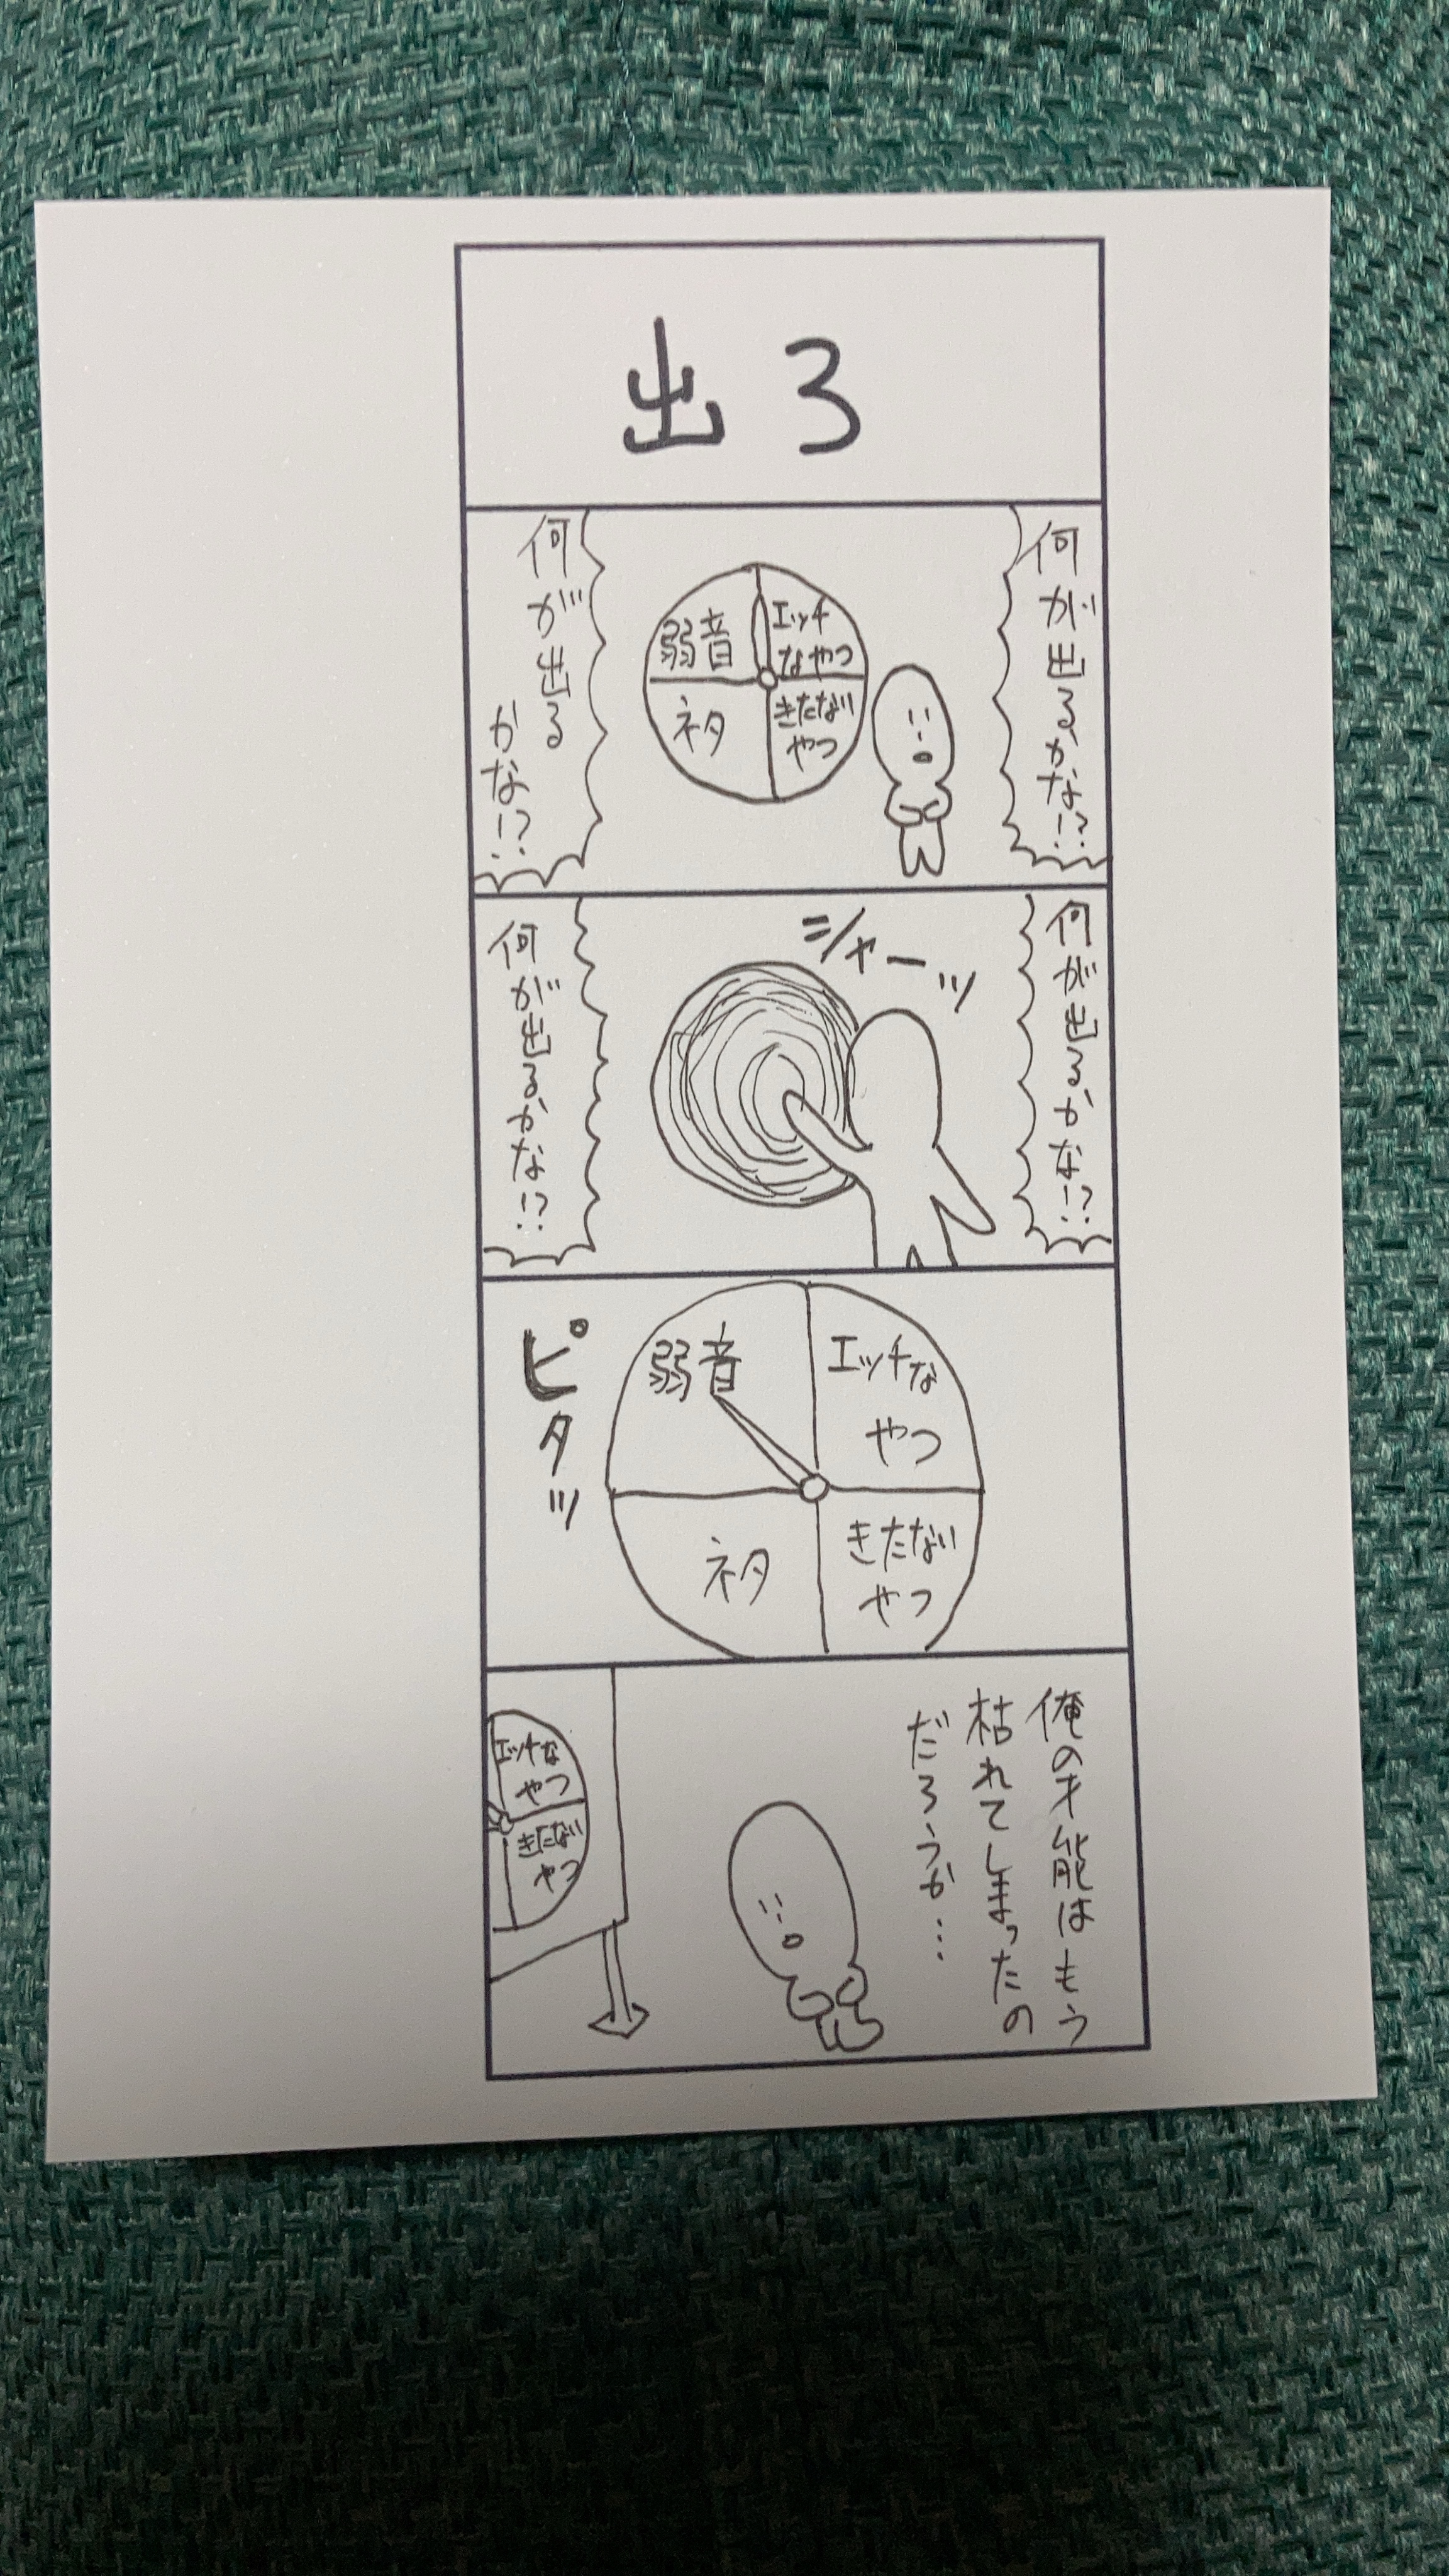 出ろ
何が出るかな!?
エッチ
なやつ
弱音
きたない
やつ
ネタ
何が出る
かな!?
何が出るかな!?
シャーッ
何が出るかな!?
エッチな
やつ
弱音
きたない
やつ
ネタ
ピタッ
俺の才能はもう
枯れてしまったの
だろうか…
エッチな
やつ
きたない
やつ